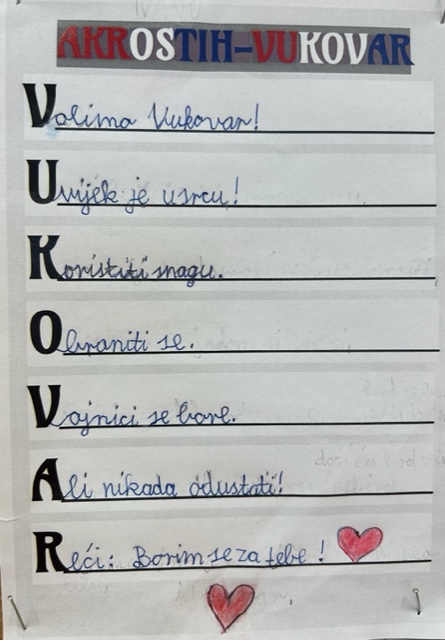 AKROSTIH-VUKOVAR
Volimo Vukovar!
Uvijek je u srcu!
Koristiti snagu.
Obraniti se.
Vojnici se bore.
Ali nikada odustati!
Reći: Borim se za tebe!